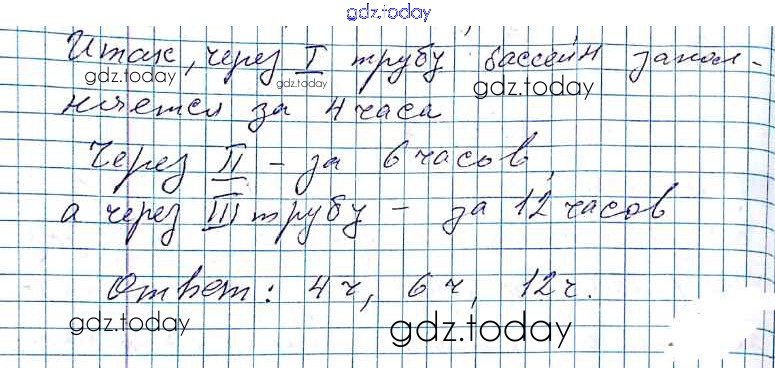 gdz.today
Итак, через I трубу бассейн запол-
gdz.today gdz.today gdz.today
няется за 4 часа
Через II - за 6 часов,
а через III трубу - за 12 часов
Ответ: 4 ч, 6 ч, 12 ч.
gdz.today gdz.today